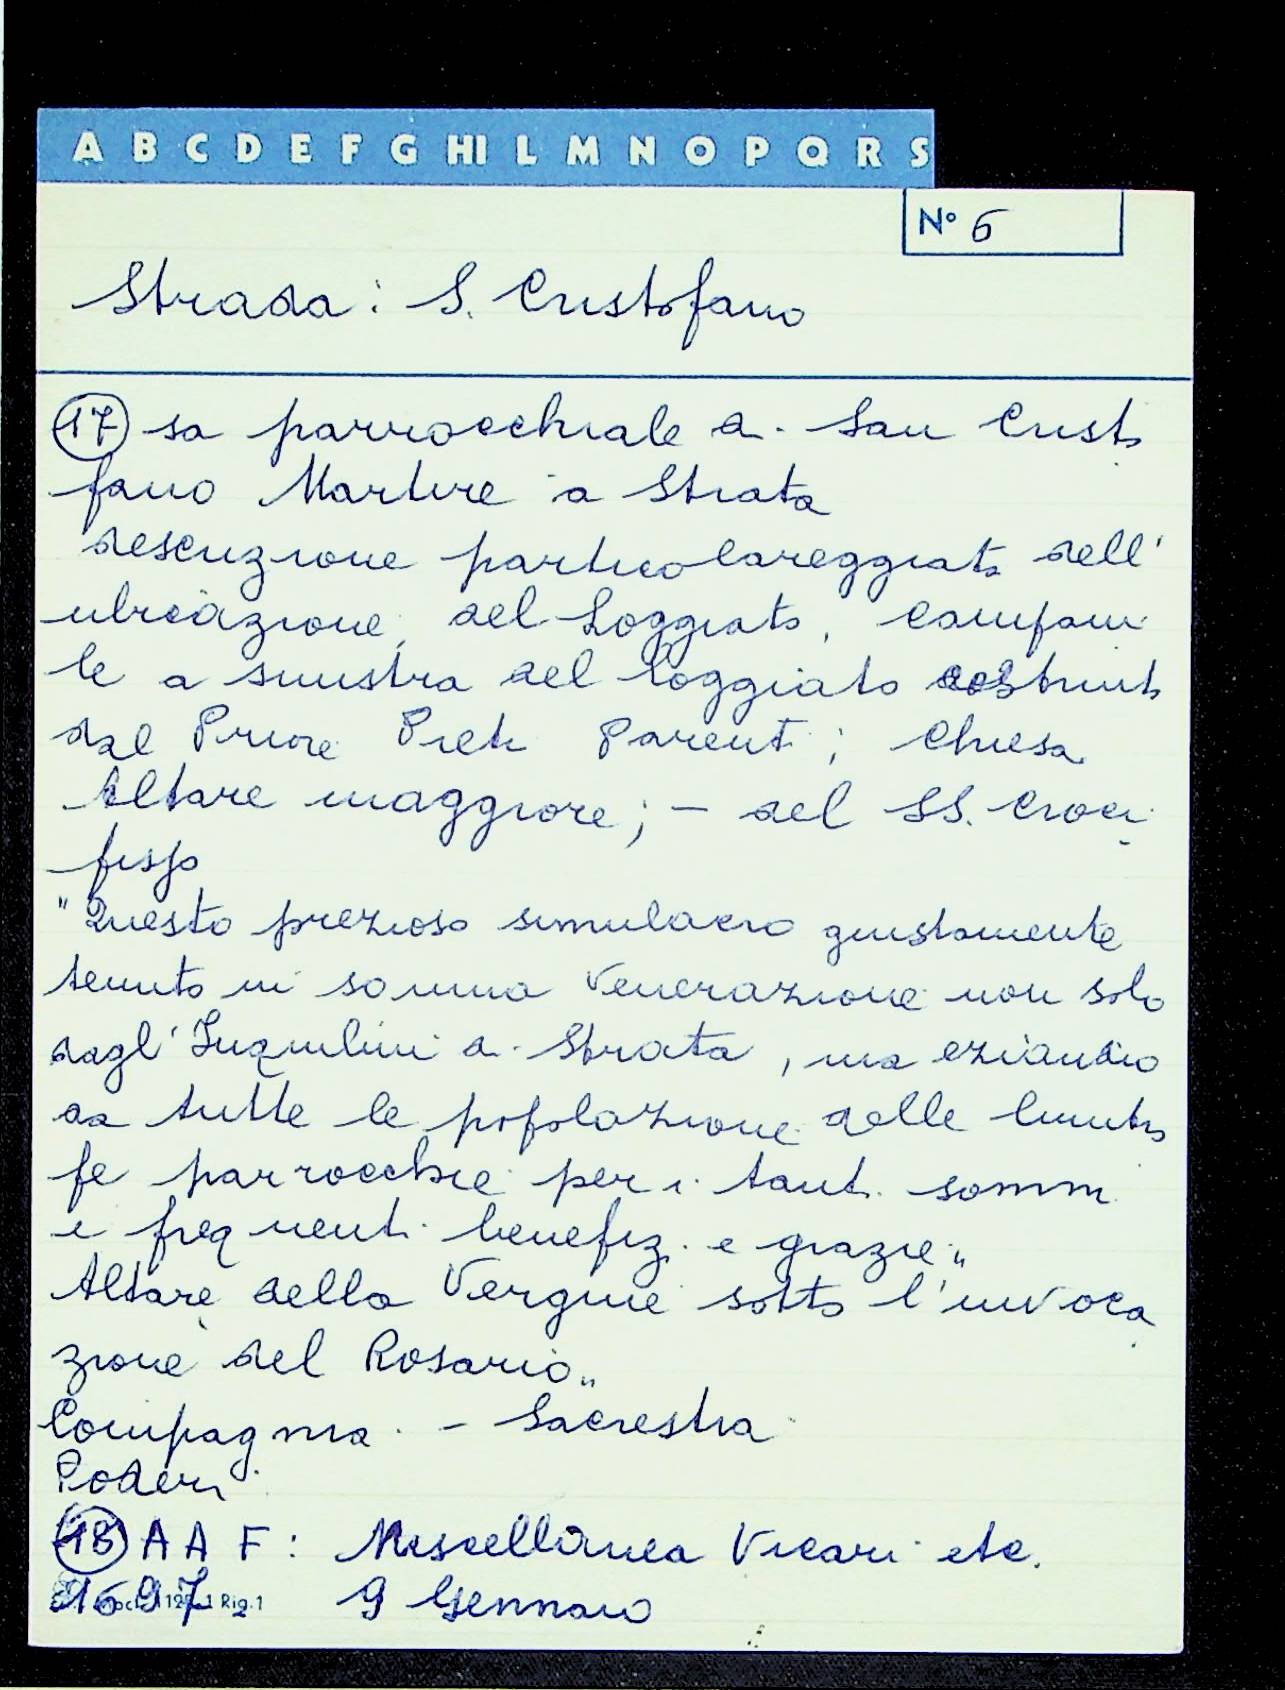 A B C D E F G HI L M N O P Q R S
N° 6
Strada: S. Cristofano
17 sa parrocchiale di San Cristo
fano Martire a Strata
descrizione particolareggiata dell'
ubicazione, del Loggiato, campani
le a sinistra del loggiato costruito
dal Priore Preti Parenti; Chiesa
Altare maggiore; - del SS. Croci
fisso
"Questo prezioso simulacro giustamente
tenuto in somma Venerazione non solo
dagl'Inquilini di Strata, ma eziandio
da tutte le popolazione delle limitro
fe parrocchie per i tanti sommi
e frequenti benefizi e grazie"
Altare della Vergine sotto l'invoca
zione del Rosario"
Compagnia - Sacrestia
Poderi
18 A A F: Miscellanea Vicari etc.
1697 9 Gennaio
Rig.1